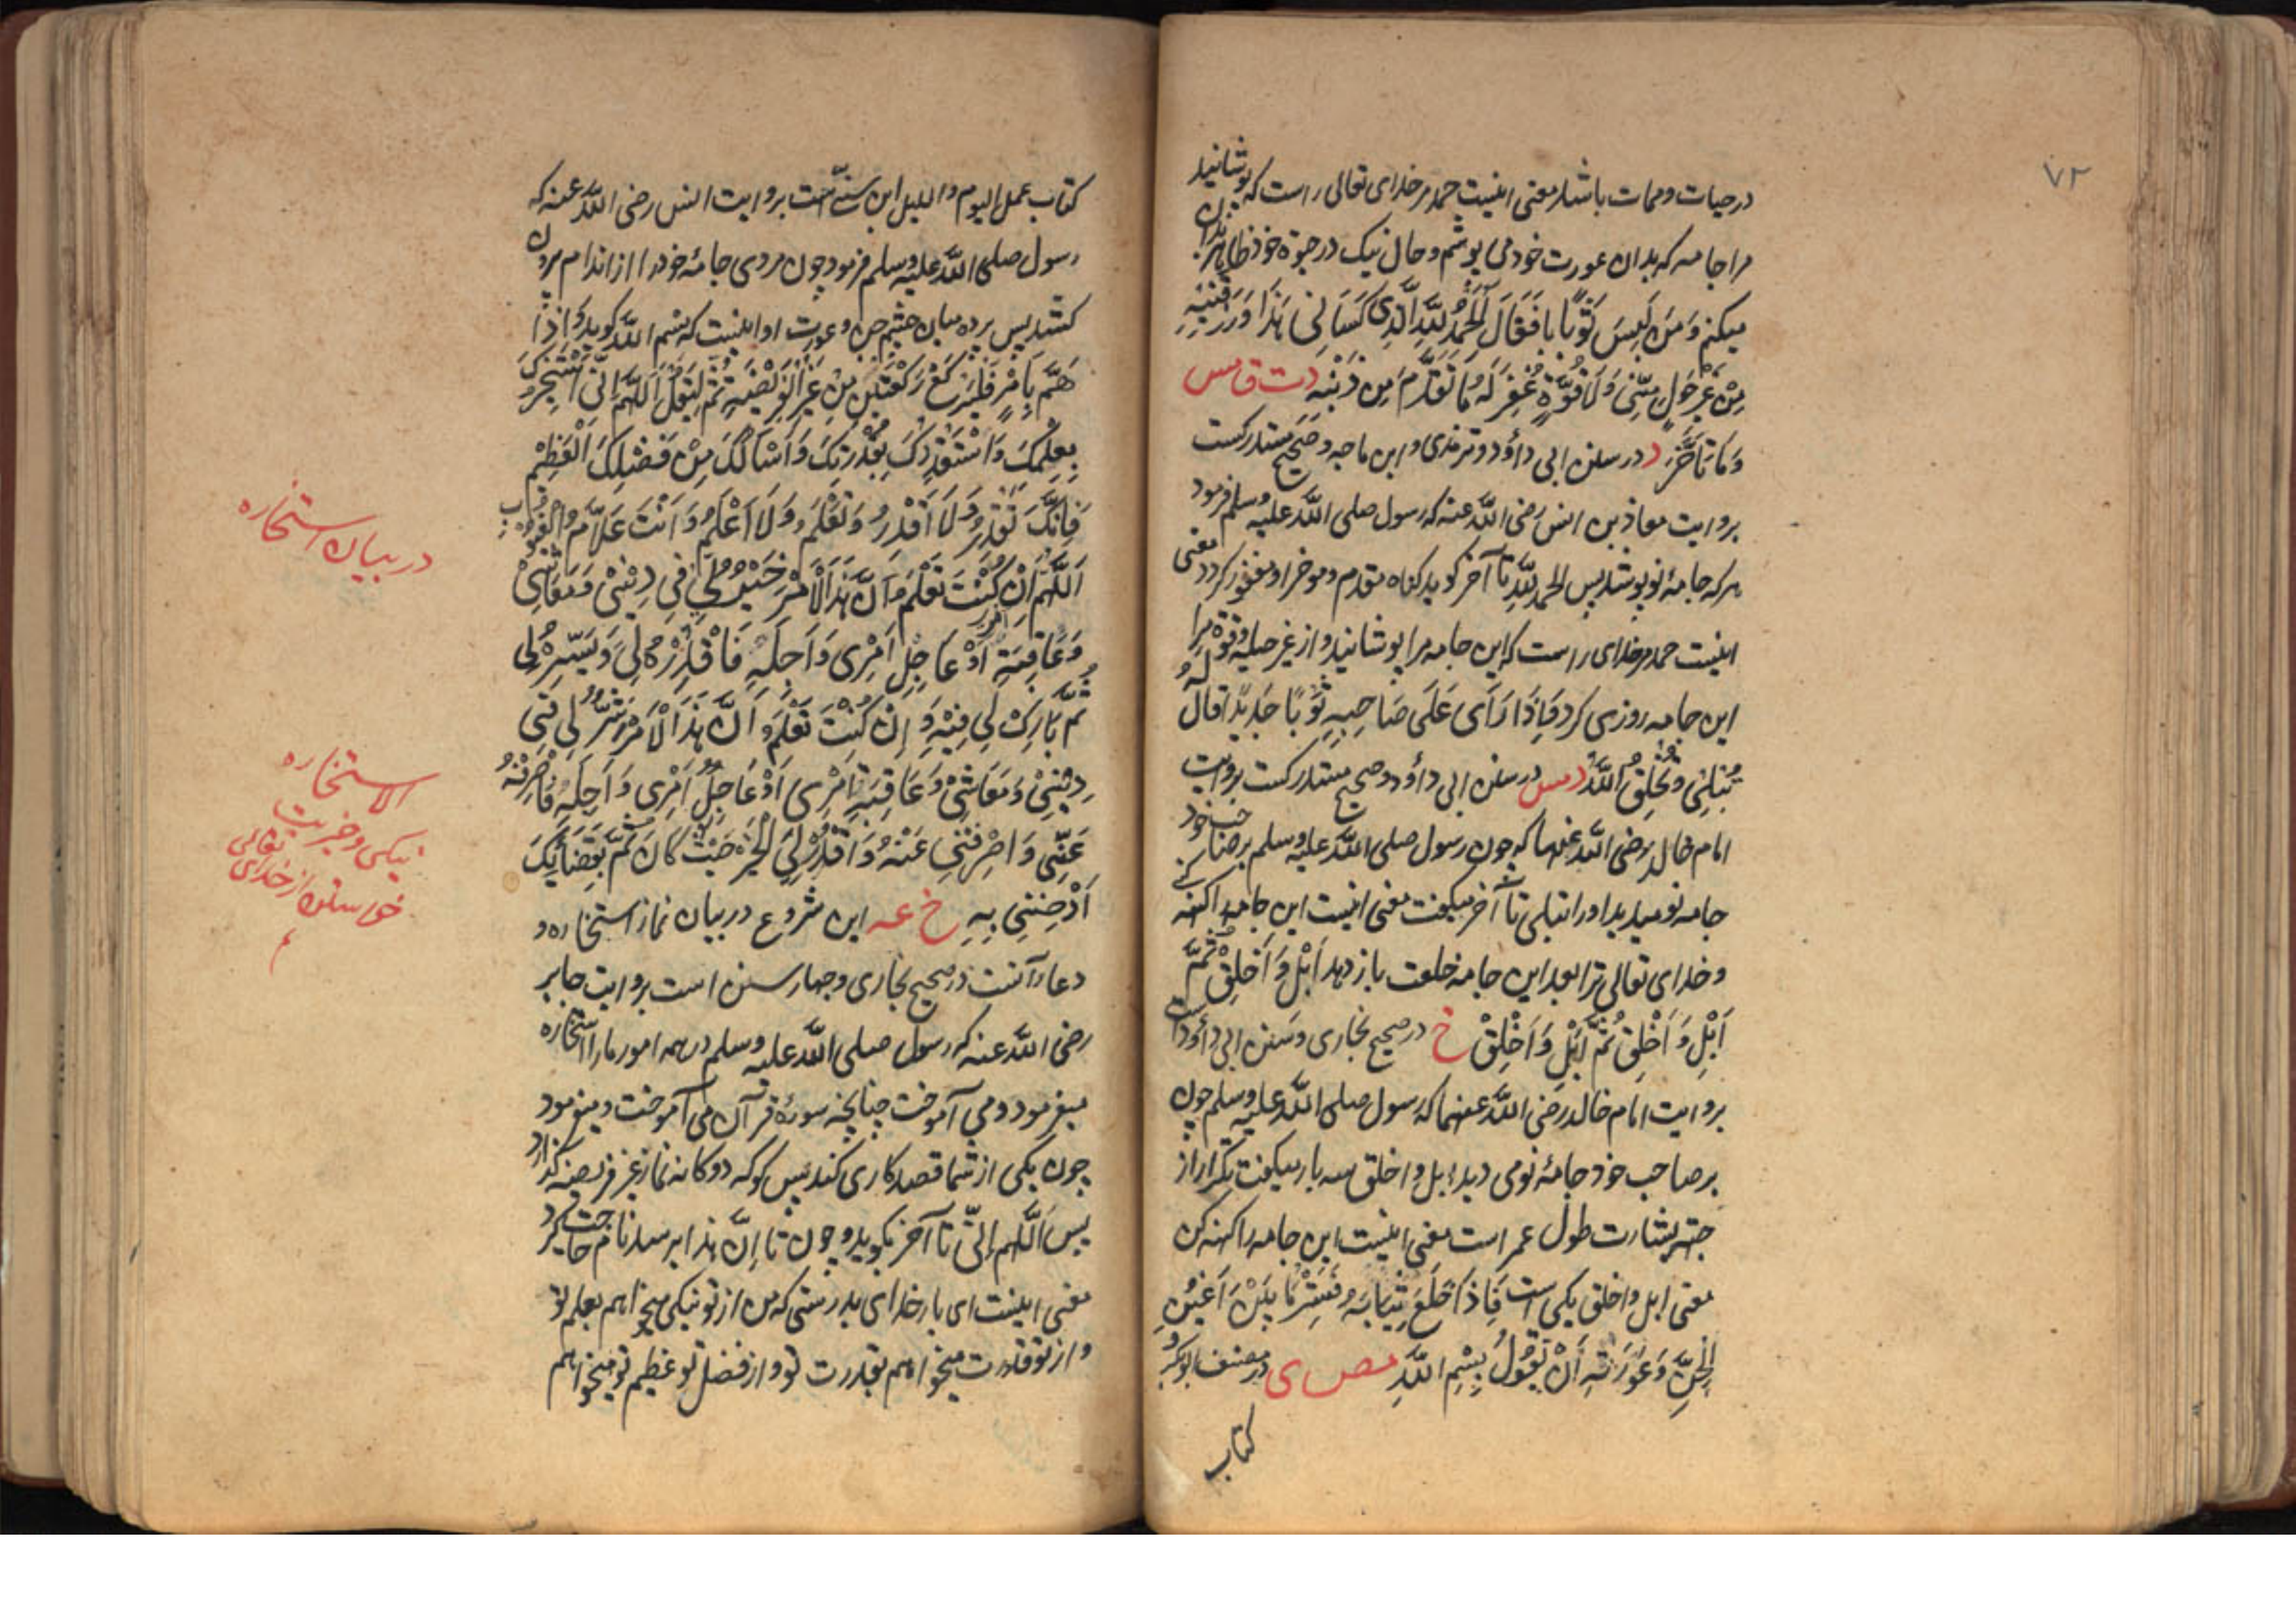 ۷۲
در حیات و ممات باشد معنی اینست حمد مر خدای تعالی راست که پوشانید
مرا جامه که بدان عورت خود می پوشم و حال نیک در حیوة خود ظاهر بدان
میکنم وَمَن لَبِسَ ثَوْبًا فَقَالَ اَلْحَمْدُ لِلّٰهِ الَّذِی کَسَانِی هَذَا وَرَزَقَنِیْهِ
مِنْ غَیْرِ حَوْلٍ مِنِّی وَلَا قُوَّةٍ غُفِرَ لَهُ مَا تَقَدَّمَ مِن ذَنْبِه د ت ق مس
وَمَا تَاَخَّرَ د در سنن ابی داؤد و ترمذی و ابن ماجه و صحیح مستدرکست
بروایت معاذ بن انس رضی اللّٰه عنه که رسول صلی اللّٰه علیه وسلم فرمود
هر که جامهٔ نو پوشد پس الحمد للّٰه تا آخر گوید گناه مقدم و موخر او مغفور گردد معنی
اینست حمد مر خدای راست که این جامه مرا پوشانید و از غیر حیله و قوة مرا
این جامه روزی کرد فَاِذَا رَاَی عَلَی صَاحِبِهِ ثَوْبًا جَدِیْدًا قَالَ لَهُ
تُبْلِی وَیُخْلِفُ اللّٰهُ د مس در سنن ابی داؤد و صحیح مستدرکست بروایت
امام خالد رضی اللّٰه عنهما که چون رسول صلی اللّٰه علیه وسلم بر صاحب خود
جامه نو میدید او را تبلی تا آخر میگفت معنی اینست این جامه را کهنه کنی
و خدای تعالی ترا بعد این جامه خلعت باز دهد اَبْلِ وَاَخْلِقْ ثُمَّ
اَبْلِ وَاَخْلِقْ ثُمَّ اَبْلِ وَاَخْلِقْ خ در صحیح بخاری و سنن ابی داؤد است
بروایت امام خالد رضی اللّٰه عنهما که رسول صلی اللّٰه علیه وسلم چون
بر صاحب خود جامهٔ نو می دید ابل و اخلق سه بار میگفت تکرار از
جهت بشارت طول عمر است معنی اینست این جامه را کهنه کن
معنی ابل و اخلق یکی است فَاِذَا خَلَعَ ثِیَابَهُ فَسِتْرُ مَا بَیْنَ اَعْیُنِ
الْجِنِّ وَعَوْرَتِهِ اَنْ یَقُوْلَ بِسْمِ اللّٰهِ مص ی در مصنف ابوبکر و
کتاب
کتاب عمل الیوم و اللیل ابن سنی است بروایت انس رضی اللّٰه عنه که
رسول صلی اللّٰه علیه وسلم فرمود چون مردی جامهٔ خود را از اندام بیرون
کشد پس پرده میان چشم جن و عورت او اینست که بسم اللّٰه گوید وَاِذَا
هَمَّ بِاَمْرٍ فَلْیَرْکَعْ رَکْعَتَیْنِ مِنْ غَیْرِ الْفَرِیْضَةِ ثُمَّ لِیَقُلْ اَللّٰهُمَّ اِنِّی اَسْتَخِیْرُکَ
بِعِلْمِکَ وَاَسْتَقْدِرُکَ بِقُدْرَتِکَ وَاَسْاَلُکَ مِنْ فَضْلِکَ الْعَظِیْمِ
فَاِنَّکَ تَقْدِرُ وَلَا اَقْدِرُ وَتَعْلَمُ وَلَا اَعْلَمُ وَاَنْتَ عَلَّامُ الْغُیُوْبِ
اَللّٰهُمَّ اِنْ کُنْتَ تَعْلَمُ اَنَّ هَذَا الْاَمْرَ خَیْرٌ لِی فِی دِیْنِیْ وَمَعَاشِیْ
وَعَاقِبَةِ اَمْرِی اَوْ عَاجِلِ اَمْرِی وَاٰجِلِهِ فَاقْدِرْهُ لِی وَیَسِّرْهُ لِی
ثُمَّ بَارِکْ لِی فِیْهِ وَاِنْ کُنْتَ تَعْلَمُ اَنَّ هَذَا الْاَمْرَ شَرٌّ لِی فِی
دِیْنِیْ وَمَعَاشِیْ وَعَاقِبَةِ اَمْرِی اَوْ عَاجِلِ اَمْرِی وَاٰجِلِهِ فَاصْرِفْهُ
عَنِّی وَاصْرِفْنِی عَنْهُ وَاقْدِرْ لِیَ الْخَیْرَ حَیْثُ کَانَ ثُمَّ بِقَضَائِکَ
اَرْضِنِی بِهِ خ عه این شروع در بیان نماز استخاره و
دعاء آنست در صحیح بخاری و چهار سنن است بروایت جابر
رضی اللّٰه عنه که رسول صلی اللّٰه علیه وسلم در همه امور ما را استخاره
میفرمود و می آموخت چنانچه سورهٔ قرآن می آموخت و میفرمود
چون یکی از شما قصد کاری کند پس گو که دوگانه نماز غیر فریضه گذارد
پس اللّٰهم انی تا آخر بگوید و چون تا اِنَّ هذا برسد نام حاجت گیرد
معنی اینست ای بار خدای بدرستی که من از تو نیکی میخواهم بعلم تو
و از تو قدرت میخواهم بقدرت تو و از فضل تو عظیم تو میخواهم
در بیان استخاره
الاستخاره
نیکی و خیریت
خواستن از خدای تعالی